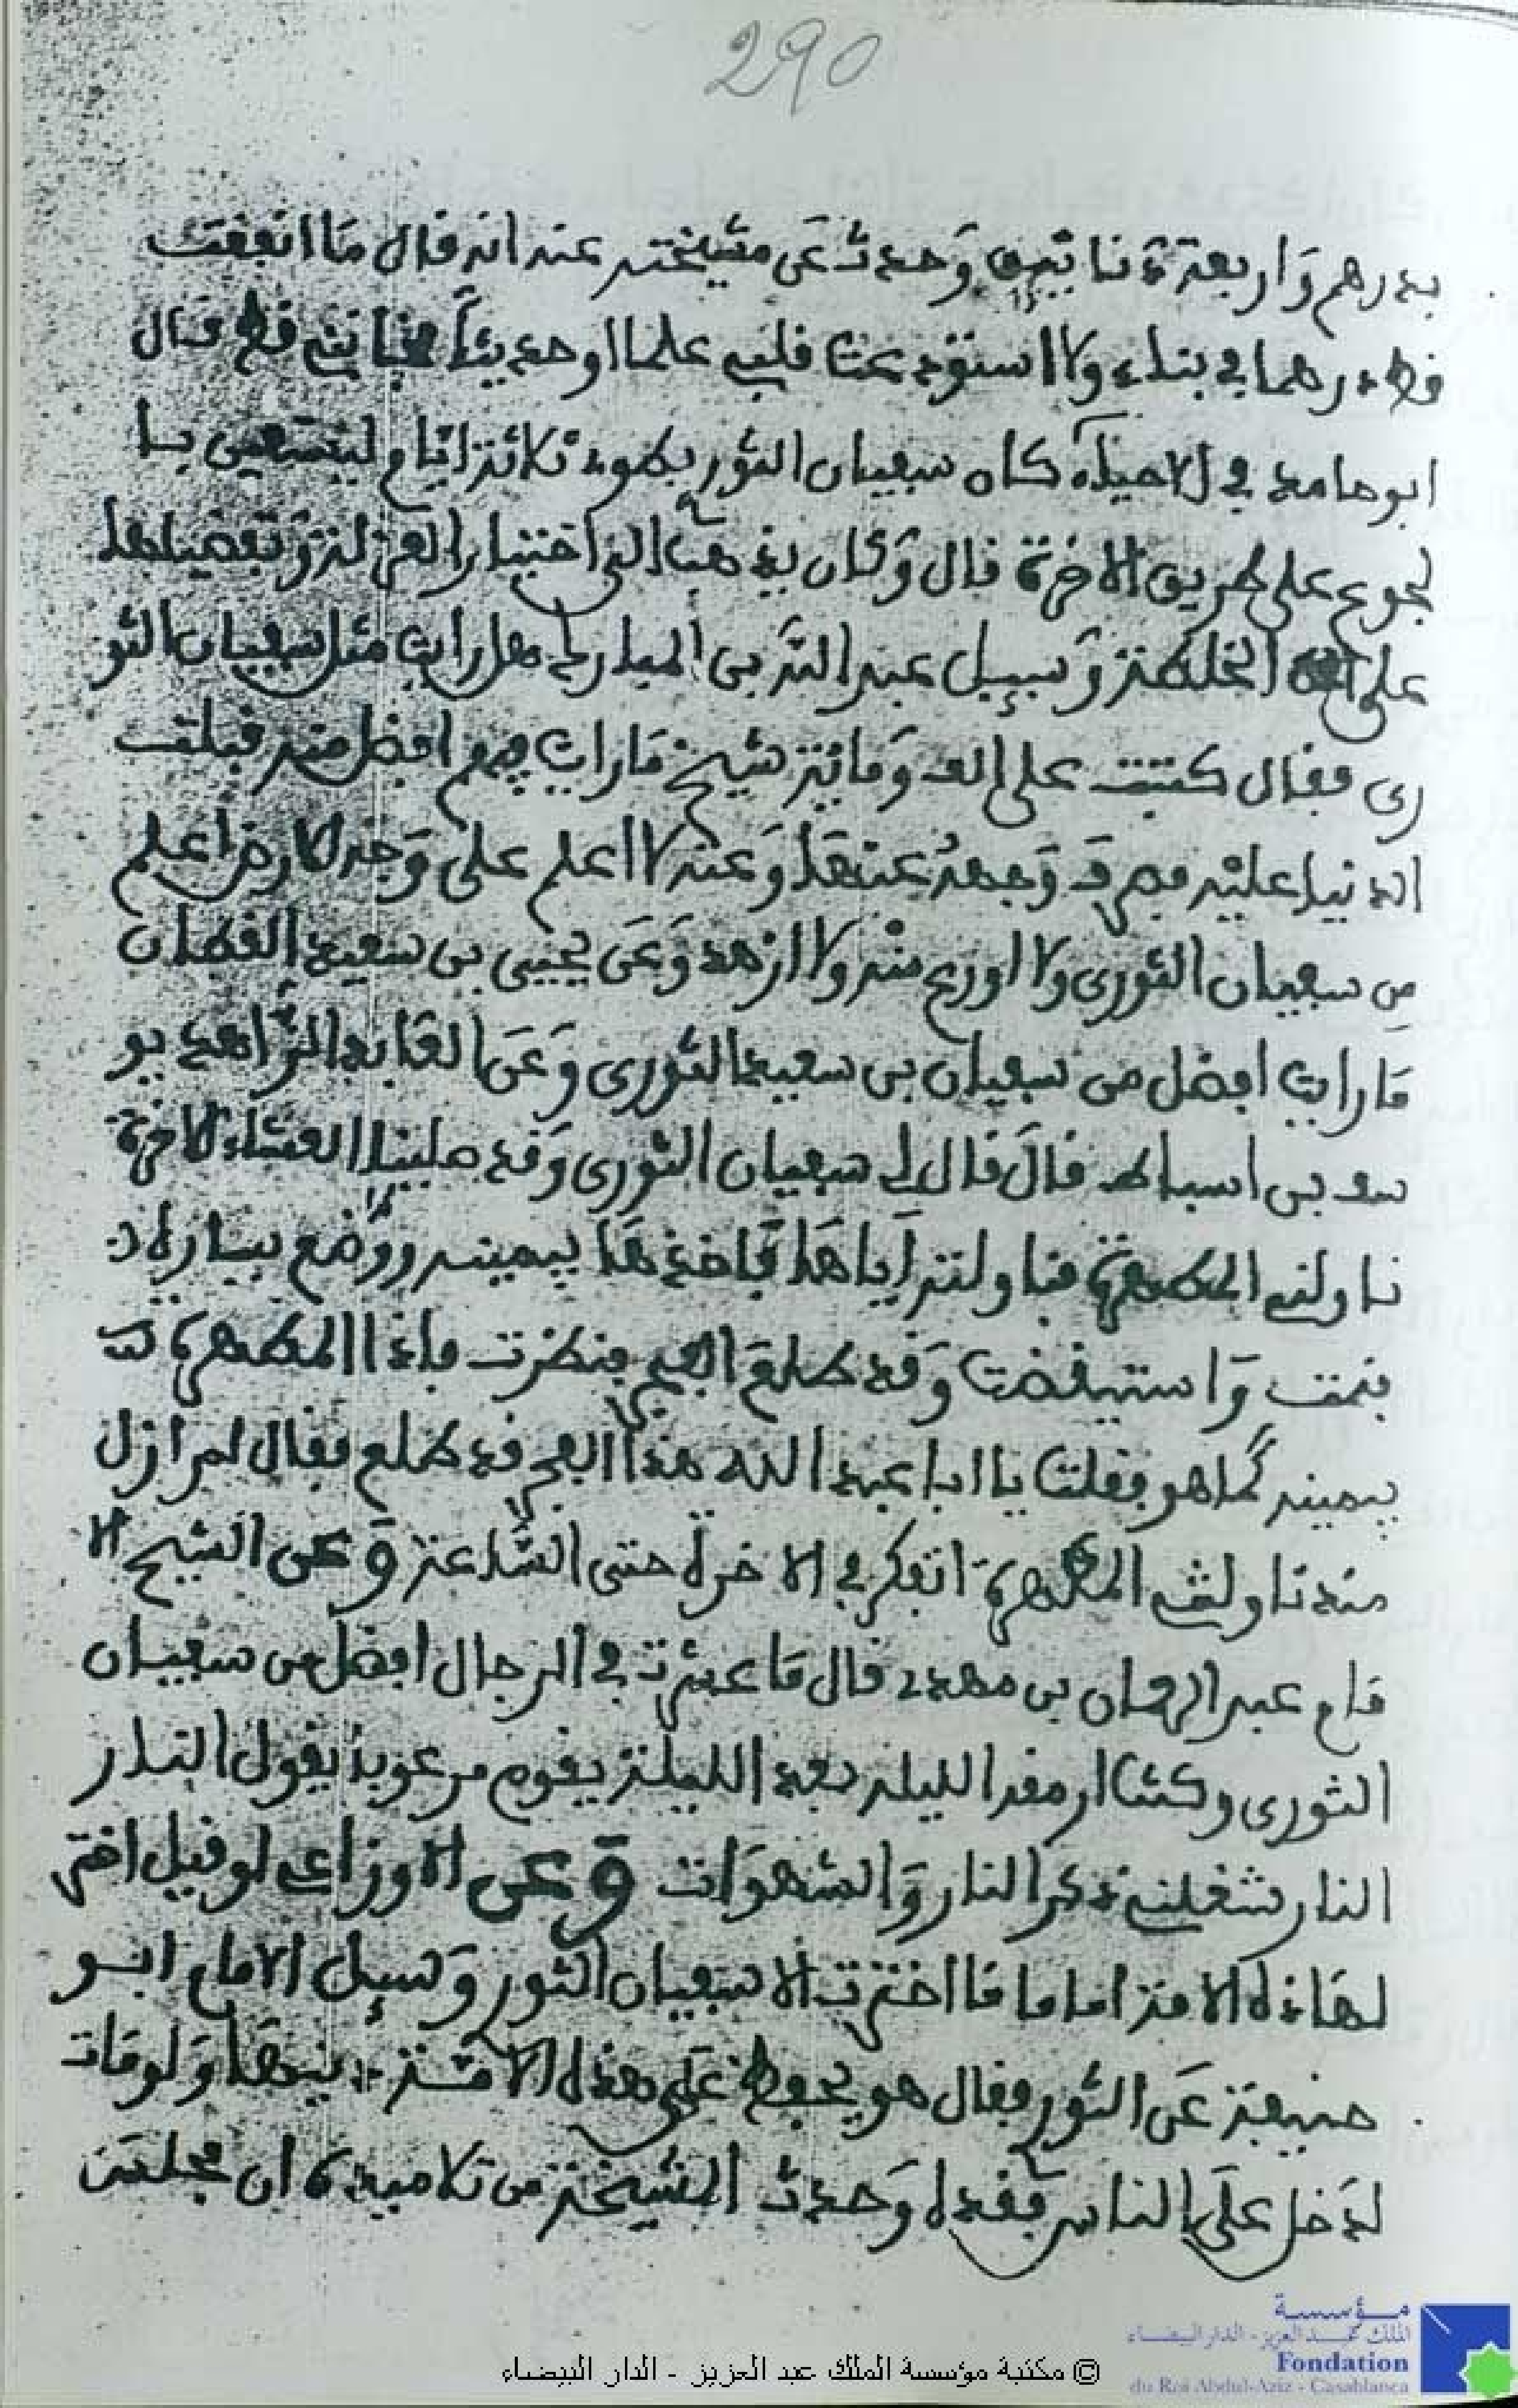 290
بدرهم واربعة دنانير وحدث عن مشيخته عنه انه قال ما انفقت
قط درهما في بناء ولا استودعت قلبي علما او حديثا فخانني قط قال
ابو حامد في الاحياء كان سفيان الثور يطوى ثلاثة ايام ليستعين با
لجوع على طريق الاخرة قال وكان يذهب الى اختيار العزلة وتفضيلها
على الخلطة وسيل عبد الله بن المبارك هل رايت مثل سفيان الثو
رى فقال كتبت على الف ومائة شيخ ما رايت فيهم افضل منه قبلت
الدنيا عليه فصرف وجهه عنها وعنه لا اعلم على وجه الارض اعلم
من سفيان الثورى ولا اورع منه ولا ازهد وعن يحيى بن سعيد القطان
ما رايت افضل من سفيان بن سعيد الثورى وعن العابد الزاهد يو
سف بن اسباط قال قال لي سفيان الثورى وقد صلينا العشاء الاخرة
ناولني المطهرة فناولته اياها فاخذها بيمينه ووضع يساره
فنمت واستيقضت وقد طلع الفجر فنظرت فاذا المطهرة
بيمينه كما هو فقلت يا ابا عبد الله هذا الفجر قد طلع فقال لم ازل
منذ ناولتني المطهرة اتفكر في الاخرة حتى الساعة وعن الشيخ الا
مام عبد الرحمان بن مهدى قال ما عشرت في الرجال افضل من سفيان
الثورى وكنت ارمقه الليلة بعد الليلة يقوم مرعوبا يقول النار
النار شغلني ذكر النار والشهوات وعن الاوزاعي لو قيل اختر
لهاذه الامة اماما ما اخترت الا سفيان الثور وسيل الامام ابو
حنيفة عن الثور فقال هو يحفظ على هذه الامة دينها ولو مات
لدخل على الناس فقده وحدث المشيخة من تلاميذه ان مجلسه
مؤسسة
الملك عبد العزيز - الدار البيضاء
Fondation
du Roi Abdul-Aziz - Casablanca
© مكتبة مؤسسة الملك عبد العزيز - الدار البيضاء